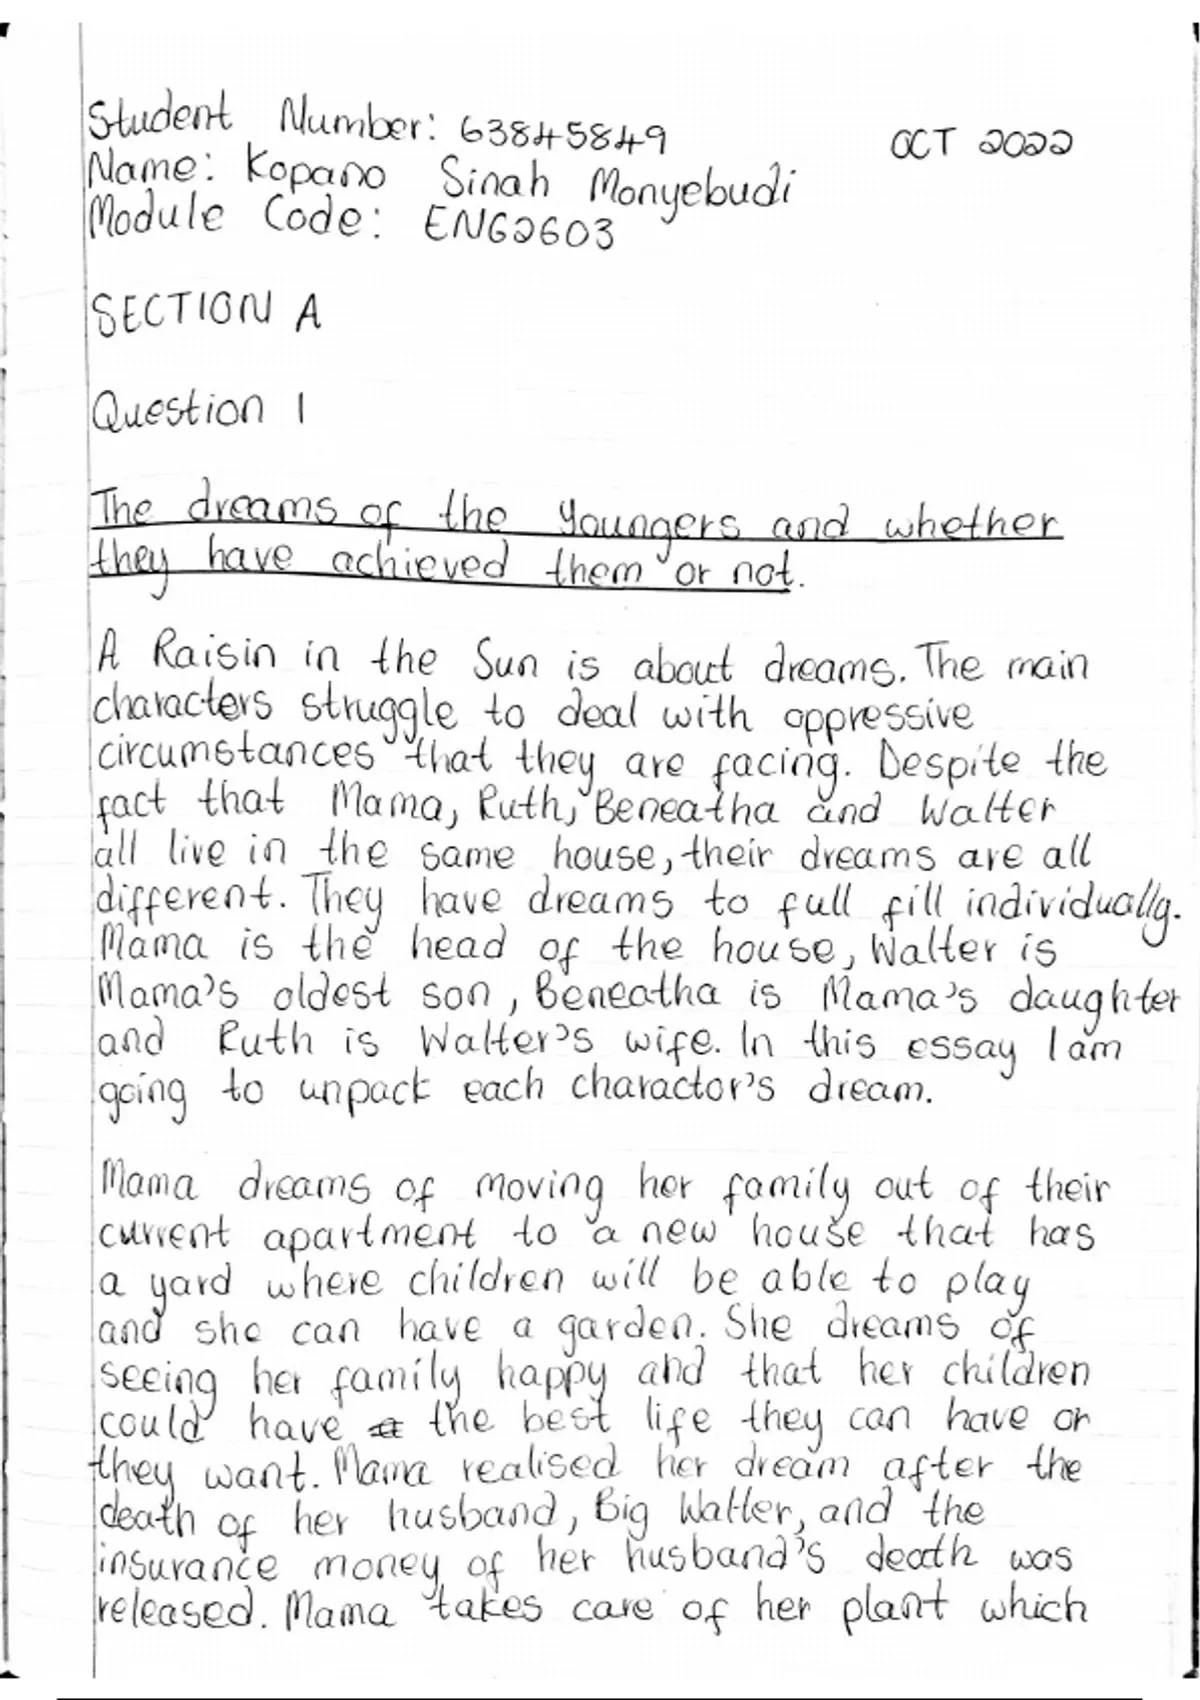 Student Number: 63845849 OCT 2022
Name: Kopano Sinah Monyebudi
Module Code: ENG2603
SECTION A
Question 1
The dreams of the Youngers and whether
they have achieved them or not.
A Raisin in the Sun is about dreams. The main
characters struggle to deal with oppressive
circumstances that they are facing. Despite the
fact that Mama, Ruth, Beneatha and Walter
all live in the same house, their dreams are all
different. They have dreams to full fill individually.
Mama is the head of the house, Walter is
Mama's oldest son, Beneatha is Mama's daughter
and Ruth is Walter's wife. In this essay I am
going to unpack each charactor's dream.
Mama dreams of moving her family out of their
current apartment to a new house that has
a yard where children will be able to play
and she can have a garden. She dreams of
seeing her family happy and that her children
could have a the best life they can have or
they want. Mama realised her dream after the
death of her husband, Big Walter, and the
insurance money of her husband's death was
released. Mama takes care of her plant which